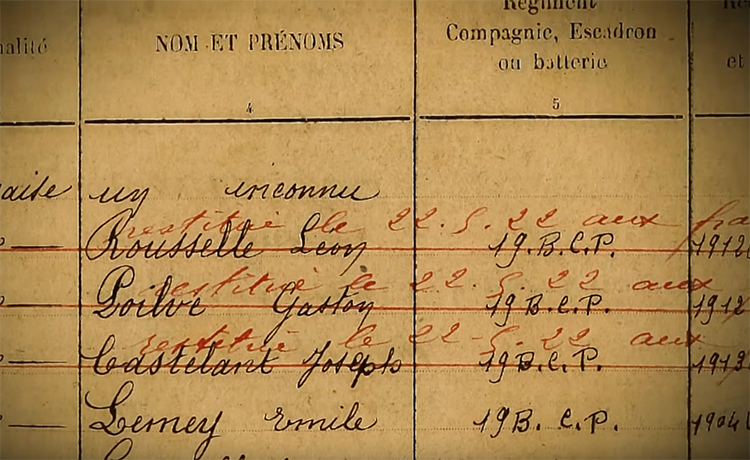 Régiment
nalité NOM ET PRÉNOMS Compagnie, Escadron
ou batterie et
4 5
aise un inconnu
restitué le 22.5.22 aux fra
Rousselle Léon 19.B.C.P. 1912
restitué le 22.5.22 aux
Poilvé Gaston 19 B.C.P. 1912
restitué le 22-5.22 aux
Castelant Joseph 19 B.C.P. 1913
Lemey Emile 19 B.C.P. 1904